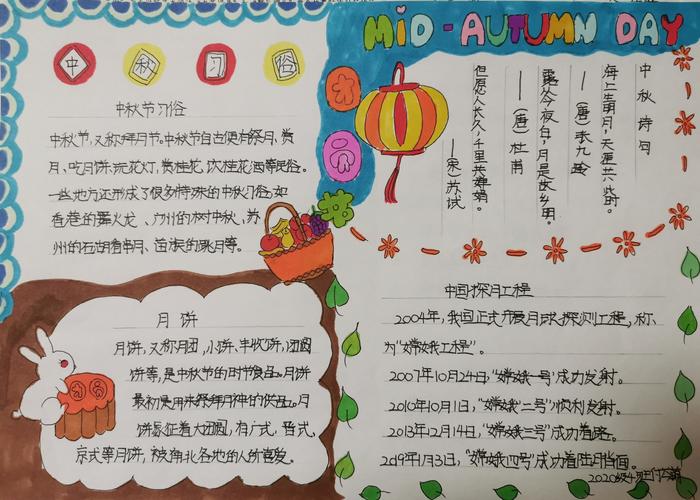 MiD-AUTUMN DAY
中秋习俗
中秋节习俗
中秋节,又称拜月节。中秋节自古便有祭月、赏
月、吃月饼、玩花灯、赏桂花、饮桂花酒等民俗。
一些地方还形成了很多特殊的中秋习俗,如
香港的舞火龙、广州的树中秋、苏
州的石湖看串月、苗族的跳月等。
月饼
月饼,又称月团,小饼、丰收饼,团圆
饼等,是中秋节的时节食品。月饼
最初是用来祭拜月神的供品。月
饼象征着大团圆,有广式,晋式
京式等月饼,被南北各地的人所喜爱。
中秋诗句
海上生明月,天涯共此时。
——(唐)张九龄
露从今夜白,月是故乡明。
——(唐)杜甫
但愿人长久,千里共婵娟。
——(宋)苏轼
中国探月工程
2004年,我国正式开展月球探测工程,称
为“嫦娥工程”。
2007年10月24日,“嫦娥一号”成功发射。
2010年10月1日,“嫦娥二号”顺利发射。
2013年12月14日,“嫦娥三号”成功着陆。
2019年1月3日,“嫦娥四号”成功着陆月背面。
2020级4班